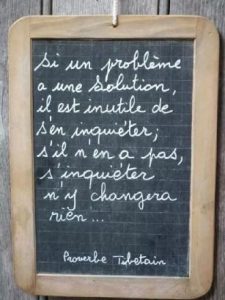 Si un problème
a une solution,
il est inutile de
s'en inquiéter;
s'il n'en a pas,
s'inquiéter
n'y changera
rien...
Proverbe Tibetain